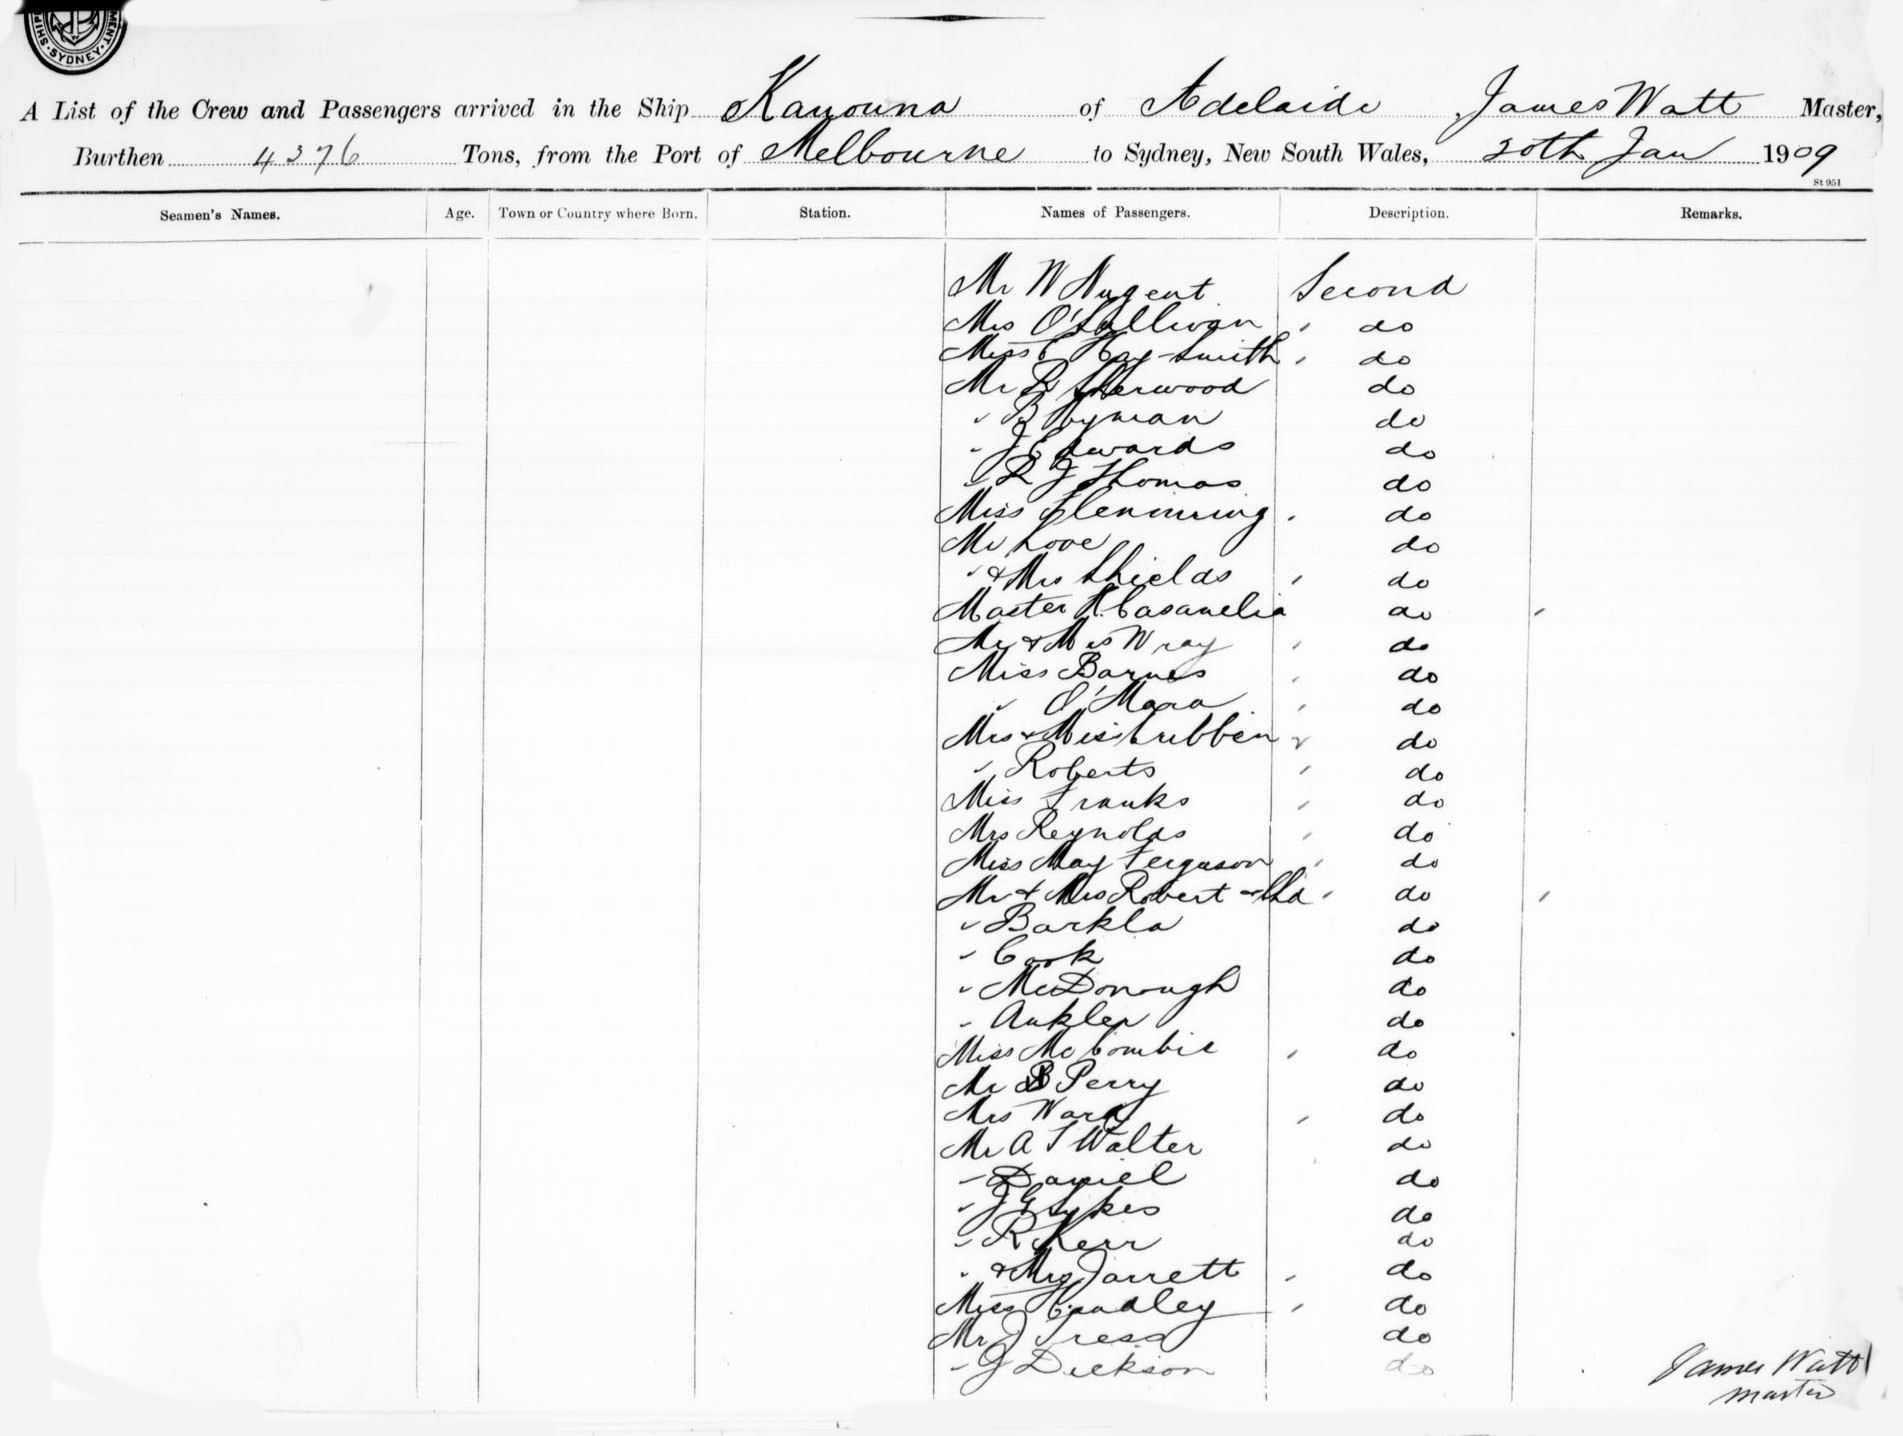 MENT · SYDNEY · SHIP
A List of the Crew and Passengers arrived in the Ship Kanowna of Adelaide James Watt Master,
Burthen 4376 Tons, from the Port of Melbourne to Sydney, New South Wales, 20th Jan 1909
St 951
Seamen's Names. Age. Town or Country where Born. Station. Names of Passengers. Description. Remarks.
Mr W Nugent Second
Mrs O'Sullivan do
Miss C Hay-Smith do
Mr R Sherwood do
" B Wyman do
" J Edwards do
" R J Thomas do
Miss Flemming do
Mr Love do
" & Mrs Shields do
Master K. Casamelia do
Mr & Mrs Wray do
Miss Barnes do
" O'Mara do
Mrs & Miss Cribbin do
" Roberts do
Miss Franks do
Mrs Reynolds do
Miss May Ferguson do
Mr & Mrs Robert & Chd do
" Barkla do
" Cook do
" McDonough do
" Ankler do
Miss McCombie do
Mr B Perry do
Mrs Ward do
Mr A T Walter do
" Daniel do
" J G Sykes do
" R Kerr do
" & Mrs Jarrett do
Miss Handley do
Mr J do
" J Dickson do
James Watt
Master